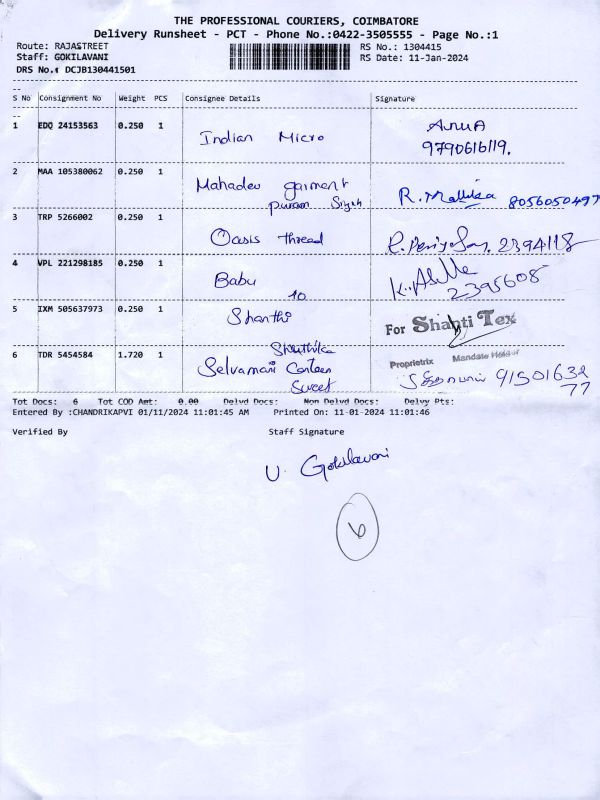 THE PROFESSIONAL COURIERS, COIMBATORE
Delivery Runsheet - PCT - Phone No.:0422-3505555 - Page No.:1
Route: RAJASTREET RS No.: 1304415
Staff: GOKILAVANI RS Date: 11-Jan-2024
DRS No.: DCJB130441501
S No Consignment No Weight PCS Consignee Details Signature
1 EDQ 24153563 0.250 1 Indian Micro Anua
9790616119.
2 MAA 105380062 0.250 1 Mahadev garment R. Mallika 8056050497
puram Singh
3 TRP 5266002 0.250 1 Oasis thread 2394118
4 VPL 221298185 0.250 1 Babu
10 2395608
5 IXM 505637973 0.250 1 Shanthi For Shanti Tex
Proprietrix Mandate Holder
6 TDR 5454584 1.720 1 Shruthika
Selvamani Canteen 91501632
Sweet 77
Tot Docs: 6 Tot COD Amt: 0.00 Delvd Docs: Non Delvd Docs: Delvy Pts:
Entered By :CHANDRIKAPVI 01/11/2024 11:01:45 AM Printed On: 11-01-2024 11:01:46
Verified By Staff Signature
U. Gokilavani
6